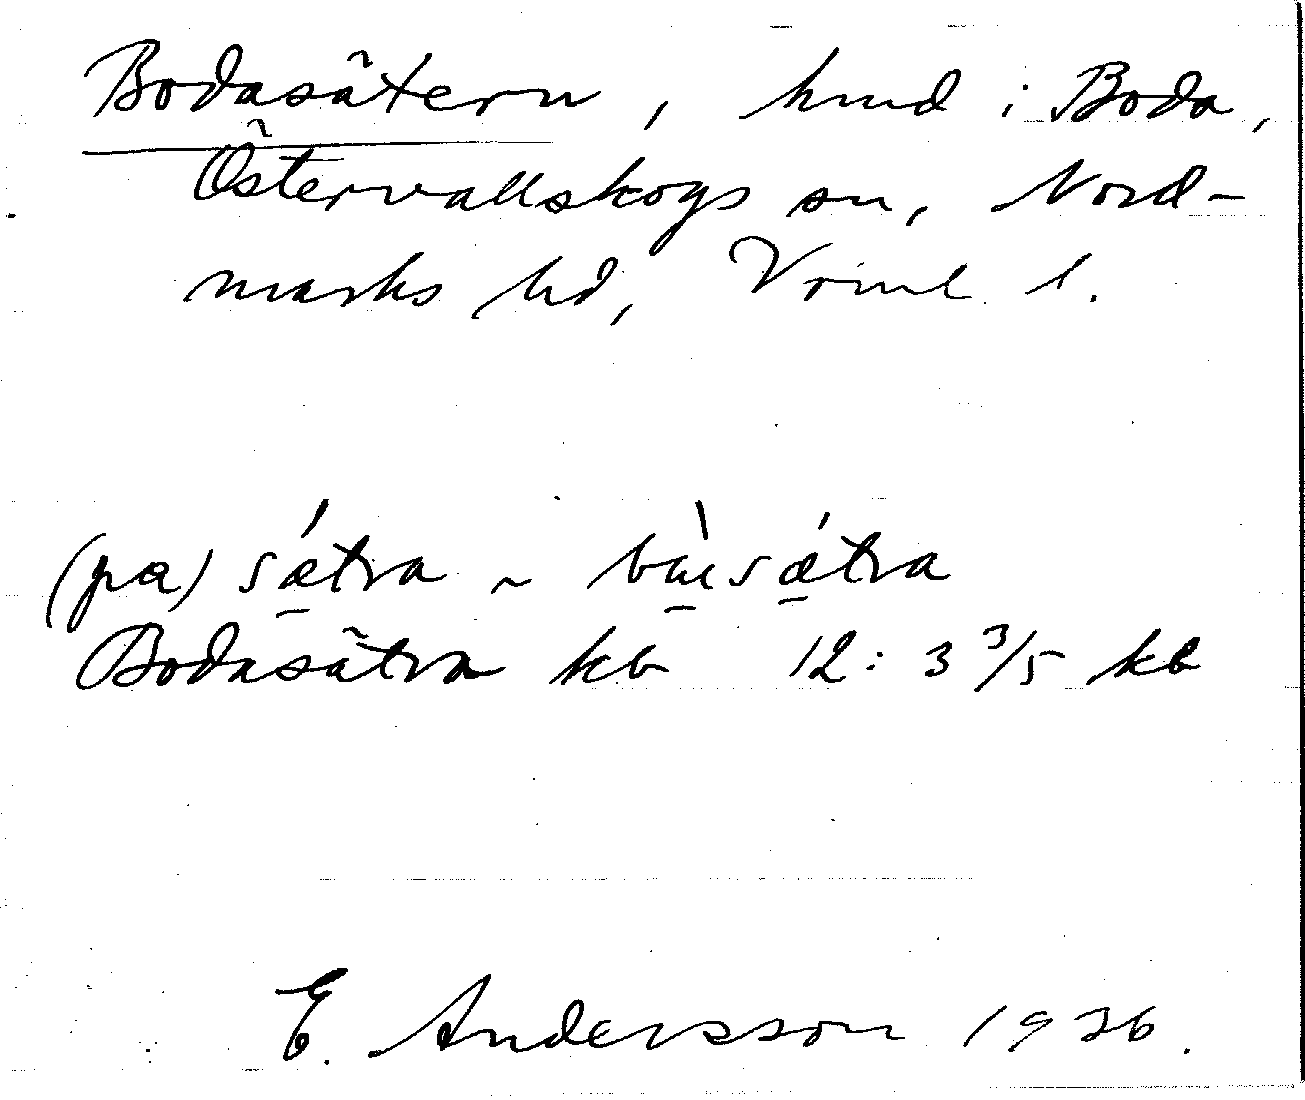 Bodasätern, hmd i Boda,
Östervallskogs sn, Nord-
marks hd, Vrml. l.
(pa) sǽtra ~ bùsǽtra
Bodasätra kb 12: 3 3/5 kb
E. Andersson 1926.